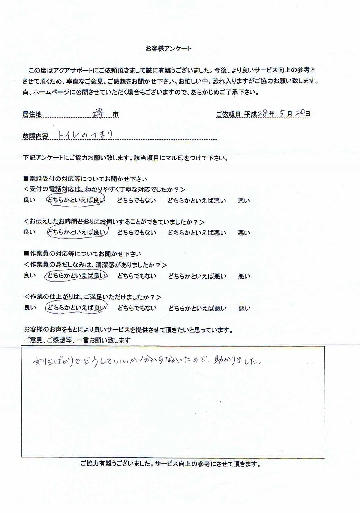 お客様アンケート
この度はアクアサポートにご依頼頂きまして誠に有難うございました。今後、より良いサービス向上の参考と
させて頂くため、率直なご意見、ご感想をお聞かせ下さい。お忙しい中、恐れ入りますがご協力お願い致します。
尚、ホームページに公開させていただく場合もございますので、あらかじめご了承下さい。
居住地 堺 市 ご依頼日 平成28年5月20日
故障内容 トイレのつまり
下記アンケートにご協力お願い致します。該当項目にマル印をつけて下さい。
■電話受付の対応等についてお聞かせ下さい
<受付の電話対応は、わかりやすく丁寧な対応でしたか?>
良い どちらかといえば良い どちらでもない どちらかといえば悪い 悪い
<お伝えしたお時間どおりに訪問することができていましたか?>
良い どちらかといえば良い どちらでもない どちらかといえば悪い 悪い
■作業員の対応等についてお聞かせ下さい
<作業員の身だしなみは、清潔感がありましたか?>
良い どちらかといえば良い どちらでもない どちらかといえば悪い 悪い
<作業の仕上がりは、ご満足いただけましたか?>
良い どちらかといえば良い どちらでもない どちらかといえば悪い 悪い
お客様のお声をもとにより良いサービスを提供させて頂きたいと思っています。
ご意見、ご感想等、一言お願い致します
どうしていいかわからないたので、助かりました。
ご協力有難うございました。サービス向上の参考にさせて頂きます。